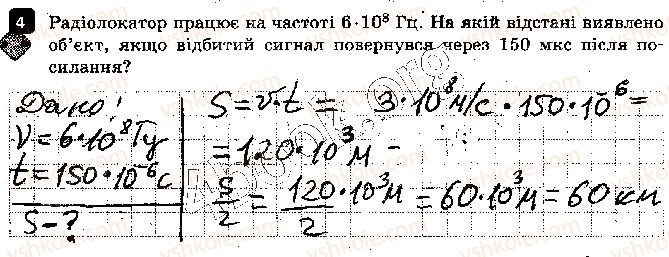 4 Радіолокатор працює на частоті 6·10⁸ Гц. На якій відстані виявлено
об'єкт, якщо відбитий сигнал повернувся через 150 мкс після по-
силання?
Дано: S = v·t = 3·10⁸ м/с · 150·10⁻⁶ =
ν = 6·10⁸ Гц = 120·10³ м
t = 150·10⁻⁶ с S/2 = 120·10³ м / 2 = 60·10³ м = 60 км
S - ?
vshkole.com